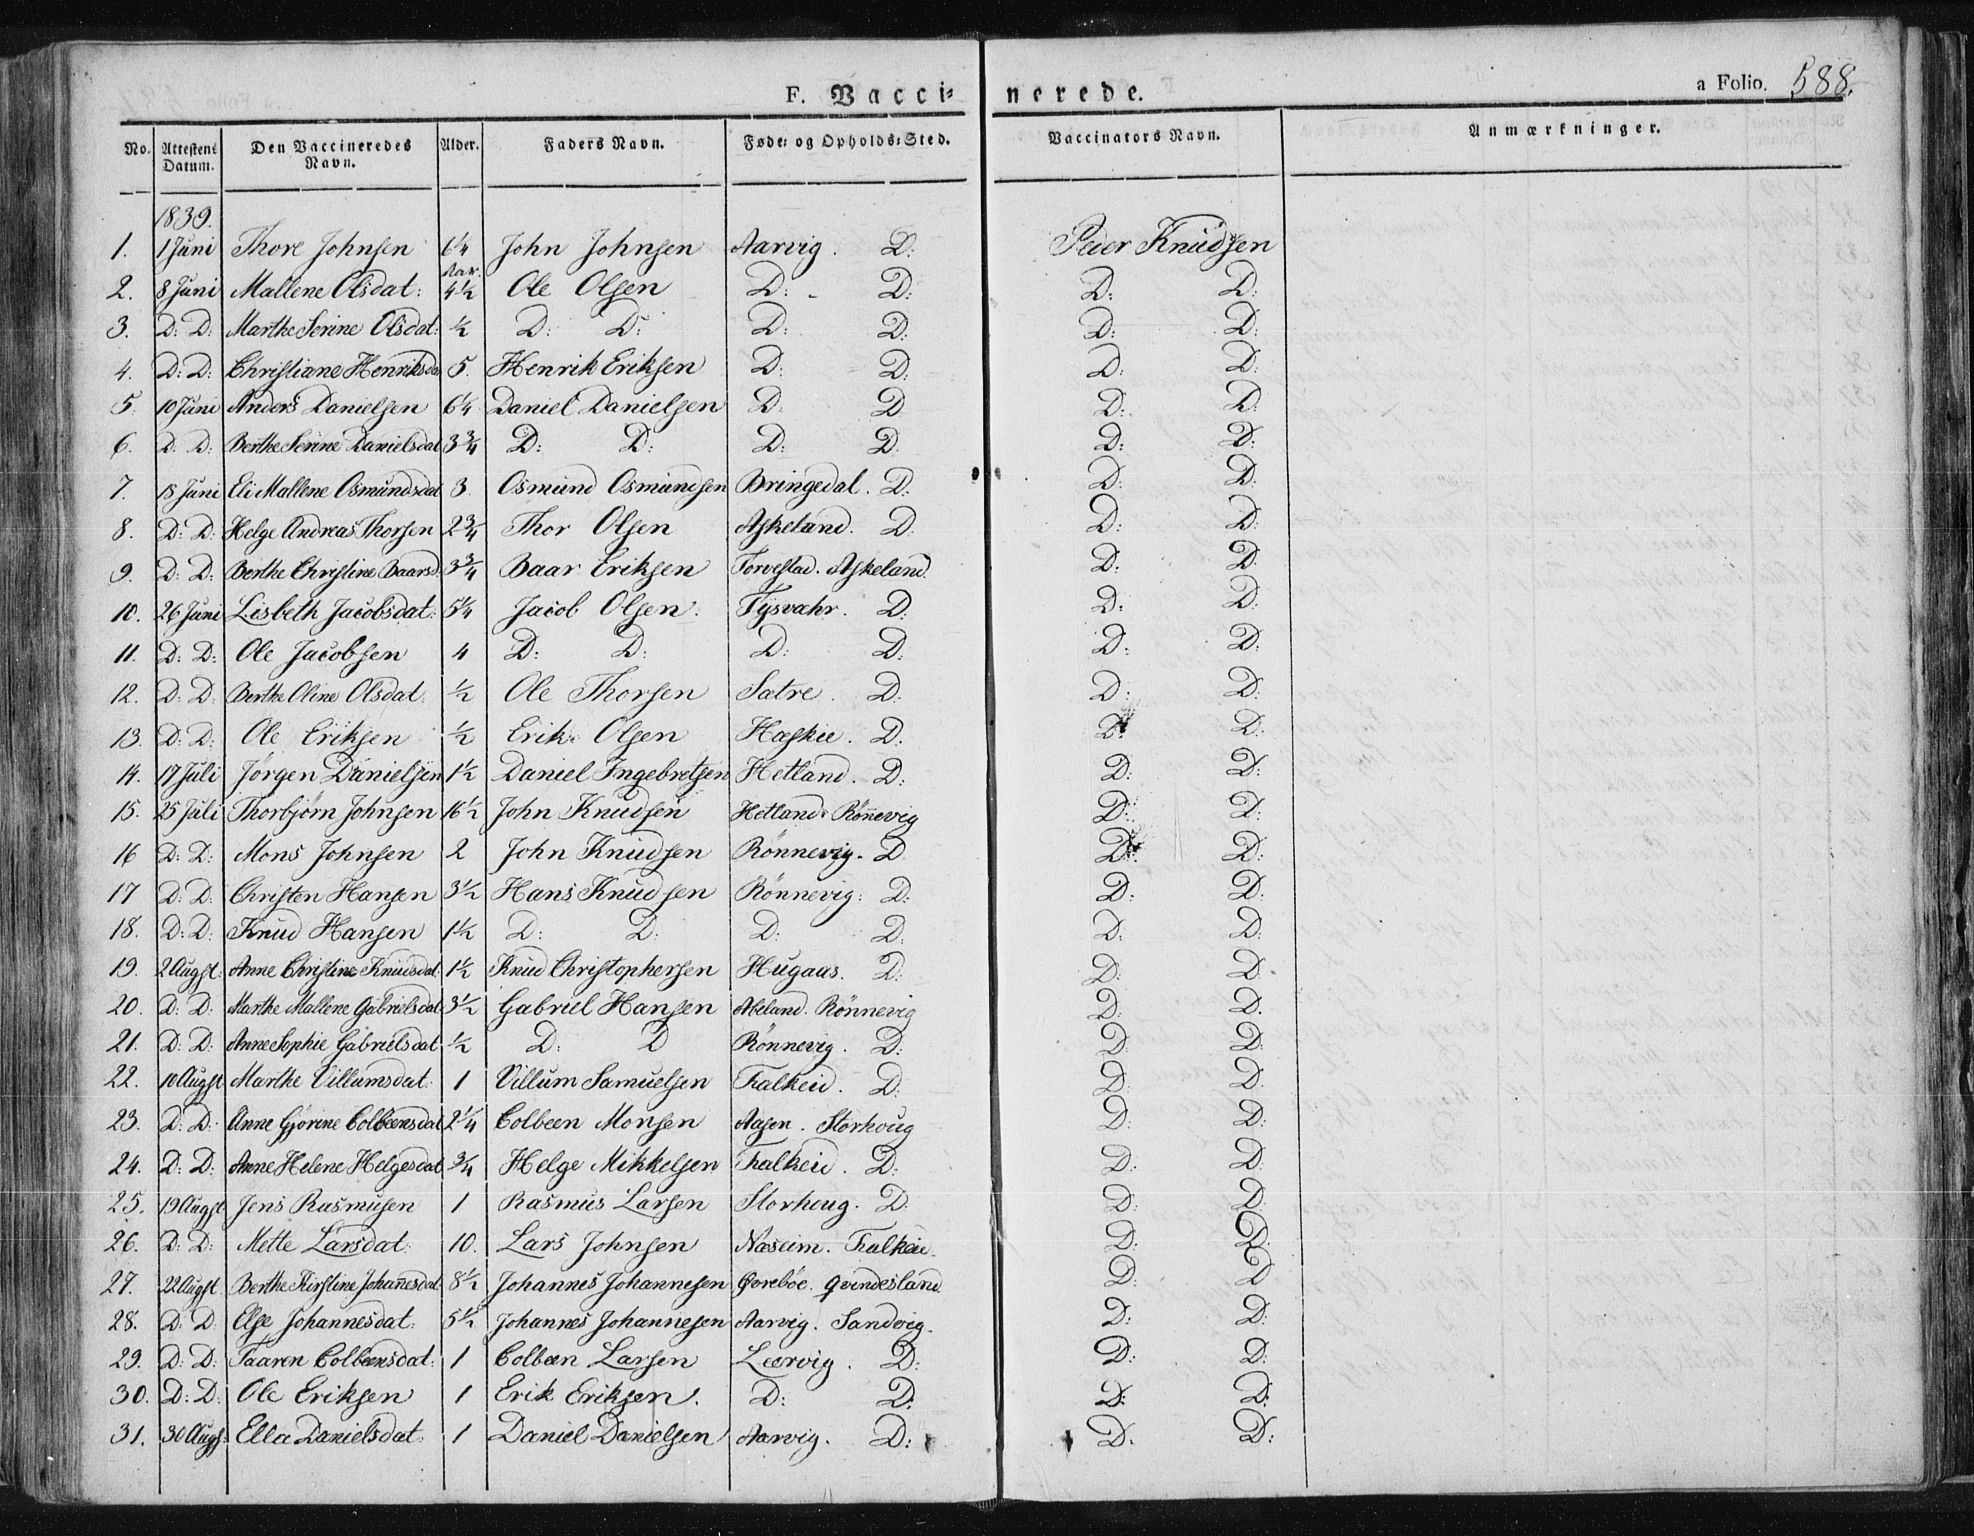 F. Vaccinerede. a Folio. 588.
No. Attestens Datum. Den Vaccineredes Navn. Alder. Faders Navn. Føde- og Opholds-Sted. Vaccinators Navn. Anmærkninger.
1839.
1. 1 Juni Thore Johnsen 6¼ Aar. John Johnsen Aarvig. D: Peder Knudsen
2. 8 Juni Mallene Olsdat: 4½ Ole Olsen D: D: D: D:
3. D: D: Marthe Serine Olsdat: ½ D: D: D: D: D: D:
4. D: D: Christiane Henriksda 5. Henrik Eriksen D: D: D: D:
5. 10 Juni Anders Danielsen 6¼ Daniel Danielsen D: D D: D:
6. D: D: Berthe Serine Danielsdat 3¾ D: D: D: D: D: D:
7. 15 Juni Eli Mallene Osmundsdat 3. Osmund Osmundsen Bringedal. D: D: D:
8. D: D: Helge Andreas Thorsen 2¾ Thor Olsen Askeland. D: D: D:
9. D: D: Berthe Christine Baarsd. 3¾ Baar Eriksen Torvestad. Askeland. D: D:
10. 26 Juni Lisbeth Jacobsdat: 5¼ Jacob Olsen. Tysvæhr. D: D: D:
11. D: D: Ole Jacobsen 4 D: D: D: D: D: D:
12. D: D: Berthe Oline Olsdat: ½ Ole Thorsen Satre. D: D: D:
13. D: D: Ole Eriksen ½ Erik Olsen Hæskie. D: D: D:
14. 17 Juli Jørgen Danielsen 1½ Daniel Ingebretsen Hetland. D: D: D:
15. 25 Juli Thorbjørn Johnsen 16½ John Knudsen Hetland. Rønnevig D: D:
16 D: D: Mons Johnsen 2 John Knudsen Rønnevig. D D: D:
17 D: D: Christen Hansen 3½ Hans Knudsen Rønnevig: D: D: D:
18. D: D: Knud Hansen 1½ D: D: D: D: D: D:
19. 2 Augst: Anne Christine Knudsdat: 1½ Knud Christophersen Hugaas. D: D: D:
20. D: D: Marthe Mallene Gabrielsdat 3½ Gabriel Hansen Abeland. Rønnevig D: D.
21. D: D: Anne Sophie Gabrielsdat ½ D: D Rønnevig. D: D: D:
22. 10 Augst Marthe Villumsdat: 1 Villum Samuelsen Falkeid. D: D: D.
23. D: D: Anne Gjorine Colbeensdat 2¼ Colbeen Monsen Aasen. Storhoug D: D:
24. D: D: Anne Helene Helgesdat ¾ Helge Mikkelsen Falkeid. D: D: D:
25. 19 Augst Jens Rasmusen 1 Rasmus Larsen Storhoug. D: D: D:
26. D: D: Mette Larsdat: 10. Lars Johnsen Næseim. Falkeid. D: D:
27. 22 Augst Berthe Kirstine Johannesdat 8½ Johannes Johannesen Øvrebøe. Qvindesland. D: D
28. D: D Else Johannesdat: 5½ Johannes Johannesen Aarvig. Sandvig. D: D:
29. D: D: Taaren Colbeensdat: 1 Colbeen Larsen Leervig. D: D: D:
30. D: D: Ole Eriksen 1 Erik Eriksen. D: D: D: D:
31. 30 Augs: Ella Danielsdat: 1 Daniel Danielsen Aarvig. D: D: D: